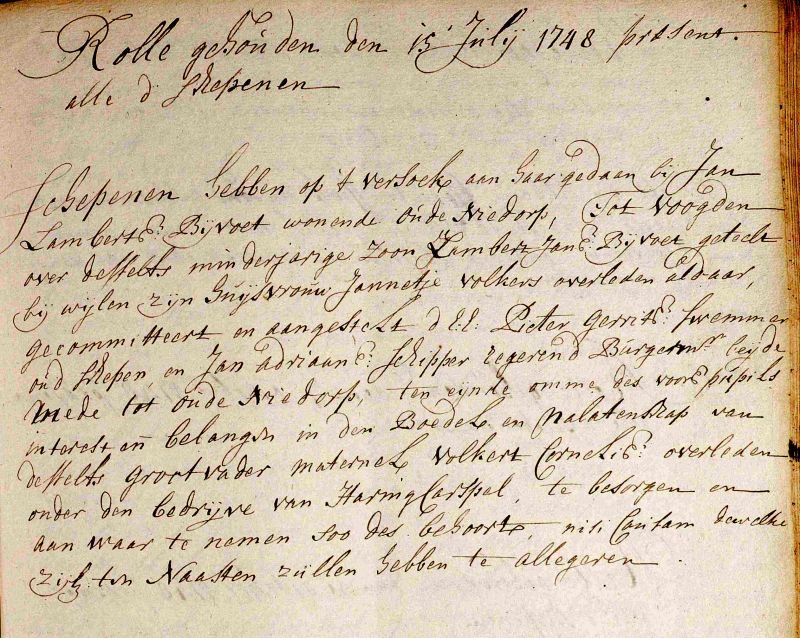 Rolle gehouden den 15 Julij 1748 præsent
alle d' Schepenen
Schepenen hebben op 't versoek aan haar gedaan bij Jan
Lambertsz: Bijvoet wonende oude Niedorp, Tot voogden
over desselfs minderjarige zoon Lambert Jansz: Bijvoet geteelt
bij wijlen zijn huijsvrouw Jannetje volkers overleden aldaar,
gecommitteert en aangestelt d' E: E: Pieter Gerritsz: Swemmer
oud schepen, en Jan adriaansz: Schipper regerend Burgermr. beijde
mede tot oude Niedorp, ten eijnde omme des voorsz pupils
interest en belangen in den Boedel en nalatenschap van
desselfs grootvader maternel volkert Cornelisz: overleden
onder den bedrijve van Haringcarspel, te besorgen en
aan waar te nemen soo des behoort, nisi Causam dewelke
zij ten Naasten zullen hebben te allegeren.